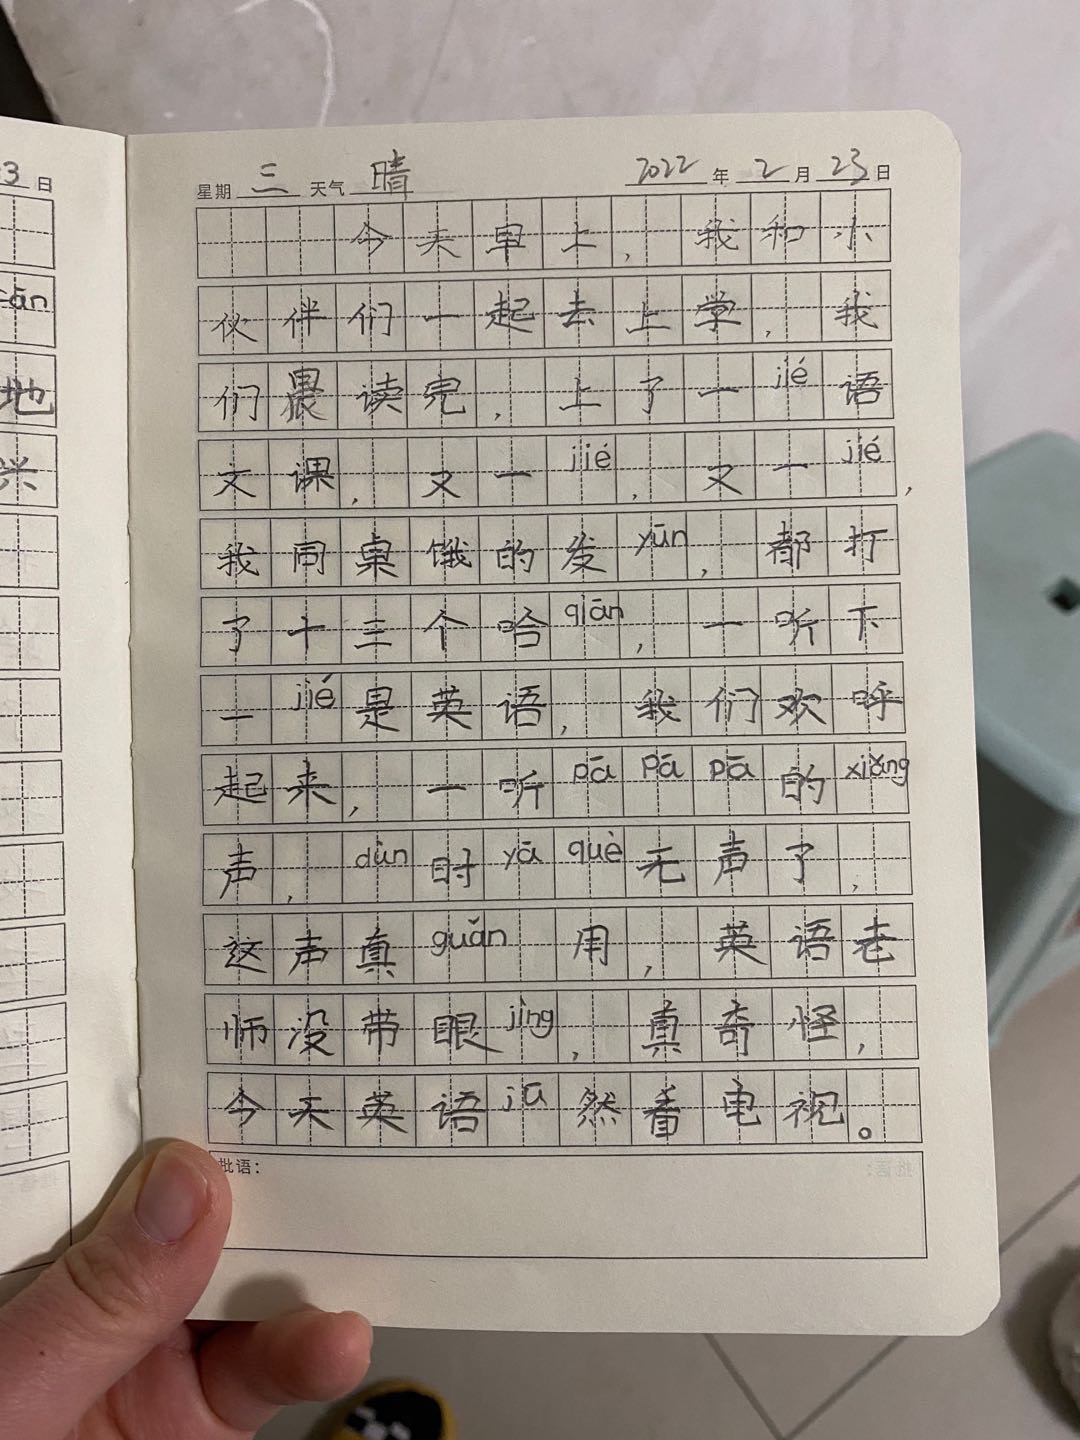 3日
星期 三 天气 晴 2022年2月23日
cān
地
兴
今天早上,我和小
伙伴们一起去上学,我
们晨读完,上了一jié语
文课,又一jié,又一jié,
我同桌饿的发yūn,都打
了十三个哈qiān,一听下
一jié是英语,我们欢呼
起来,一听pāpāpā的xiǎng
声,dùn时yāquè无声了,
这声真guǎn用,英语老
师没带眼jìng,真奇怪,
今天英语jū然看电视。
批语: